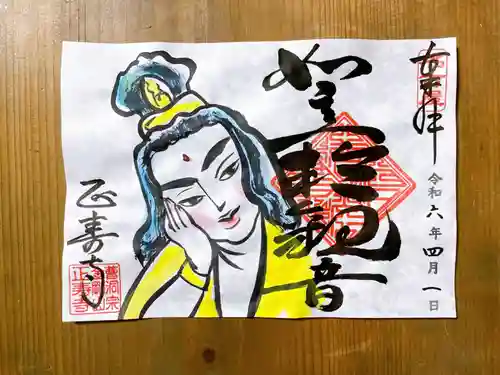 奉拝
令和六年四月一日
如意輪観音
正寿寺
曹洞宗
正寿寺